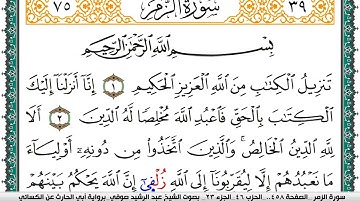 ٣٩ سُورَةُ الزُّمَرِ ٧٥
بِسْمِ اللَّهِ الرَّحْمَٰنِ الرَّحِيمِ
تَنزِيلُ الْكِتَابِ مِنَ اللَّهِ الْعَزِيزِ الْحَكِيمِ ١ إِنَّا أَنزَلْنَا إِلَيْكَ
الْكِتَابَ بِالْحَقِّ فَاعْبُدِ اللَّهَ مُخْلِصًا لَّهُ الدِّينَ ٢ أَلَا
لِلَّهِ الدِّينُ الْخَالِصُ وَالَّذِينَ اتَّخَذُوا مِن دُونِهِ أَوْلِيَاءَ
مَا نَعْبُدُهُمْ إِلَّا لِيُقَرِّبُونَا إِلَى اللَّهِ زُلْفَىٰ إِنَّ اللَّهَ يَحْكُمُ بَيْنَهُمْ
سورة الزمر الصفحة ٤٥٨.. الحزب ٤٦ .. الجزء ٢٣ .. بصوت الشيخ عبد الرشيد صوفي .. برواية أبي الحارث عن الكسائي